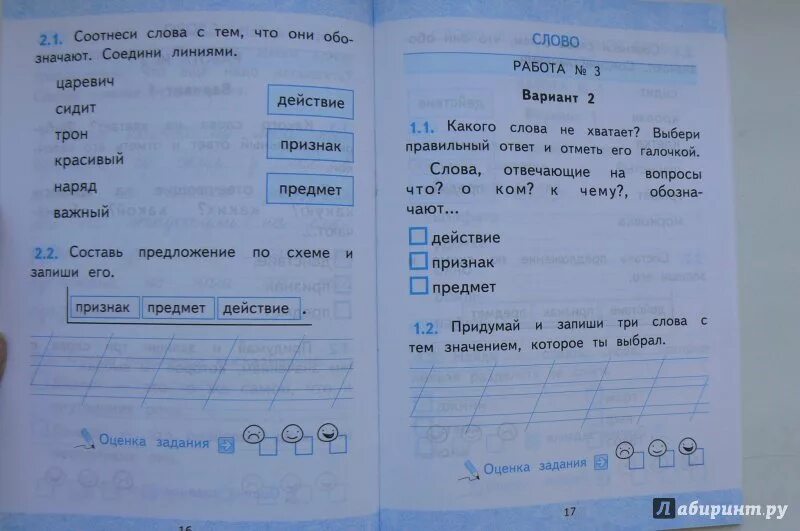 2.1. Соотнеси слова с тем, что они обо-
значают. Соедини линиями.
царевич
сидит
трон
красивый
наряд
важный
действие
признак
предмет
2.2. Составь предложение по схеме и
запиши его.
признак предмет действие .
Оценка задания
16
СЛОВО
РАБОТА № 3
Вариант 2
1.1. Какого слова не хватает? Выбери
правильный ответ и отметь его галочкой.
Слова, отвечающие на вопросы
что? о ком? к чему?, обозна-
чают...
действие
признак
предмет
1.2. Придумай и запиши три слова с
тем значением, которое ты выбрал.
Оценка задания
17
Лабиринт.ру